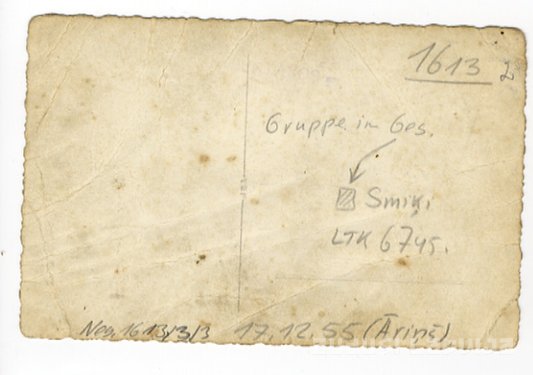 1613
Gruppe in Ges.
Smiķi
LTK 6745.
Neg. 1613/3/3 17.12.55 (Āriņš)